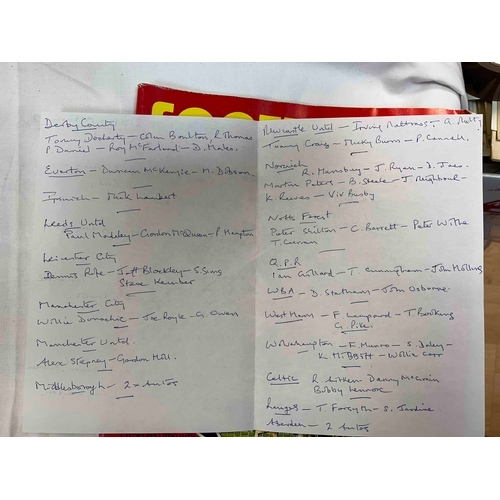 FOOT
Derby County
Tommy Docherty - Colin Boulton, R Thomas
P. Daniel - Roy McFarland - D. Hales.
Everton - Duncan McKenzie - M. Dobson.
Ipswich - Mick Lambert
Leeds Untd
Paul Madeley - Gordon McQueen - P. Hampton
Leicester City
Dennis Rofe - Jeff Blockley - S. Sims
Steve Kember
Manchester City
Willie Donachie - Joe Royle - G. Owen
Manchester Untd.
Alex Stepney - Gordon Hill.
Middlesborough - 2 x Autos
Newcastle Untd - Irving Nattrass - G.
Tommy Craig - Micky Burns - P. Cannell.
Norwich
R. Hansbury - J. Ryan - D. Jones.
Martin Peters - B. Steele - J Neighbour -
K. Reeves - Viv Busby
Notts Forest
Peter Shilton - C. Barrett - Peter Withe
T. Curran
Q.P.R
Ian Gillard - T Cunningham - John Hollins
WBA - D. Statham - John Osborne.
West Ham - F Lampard - T. Brooking
G. Pike.
Wolverhampton - F. Munro - S. Daley -
K Hibbitt - Willie Carr
Celtic R Aitken - Danny McGrain
Bobby Lennox
Rangers - T. Forsyth - S. Jardine
Aberdeen - 2 Autos